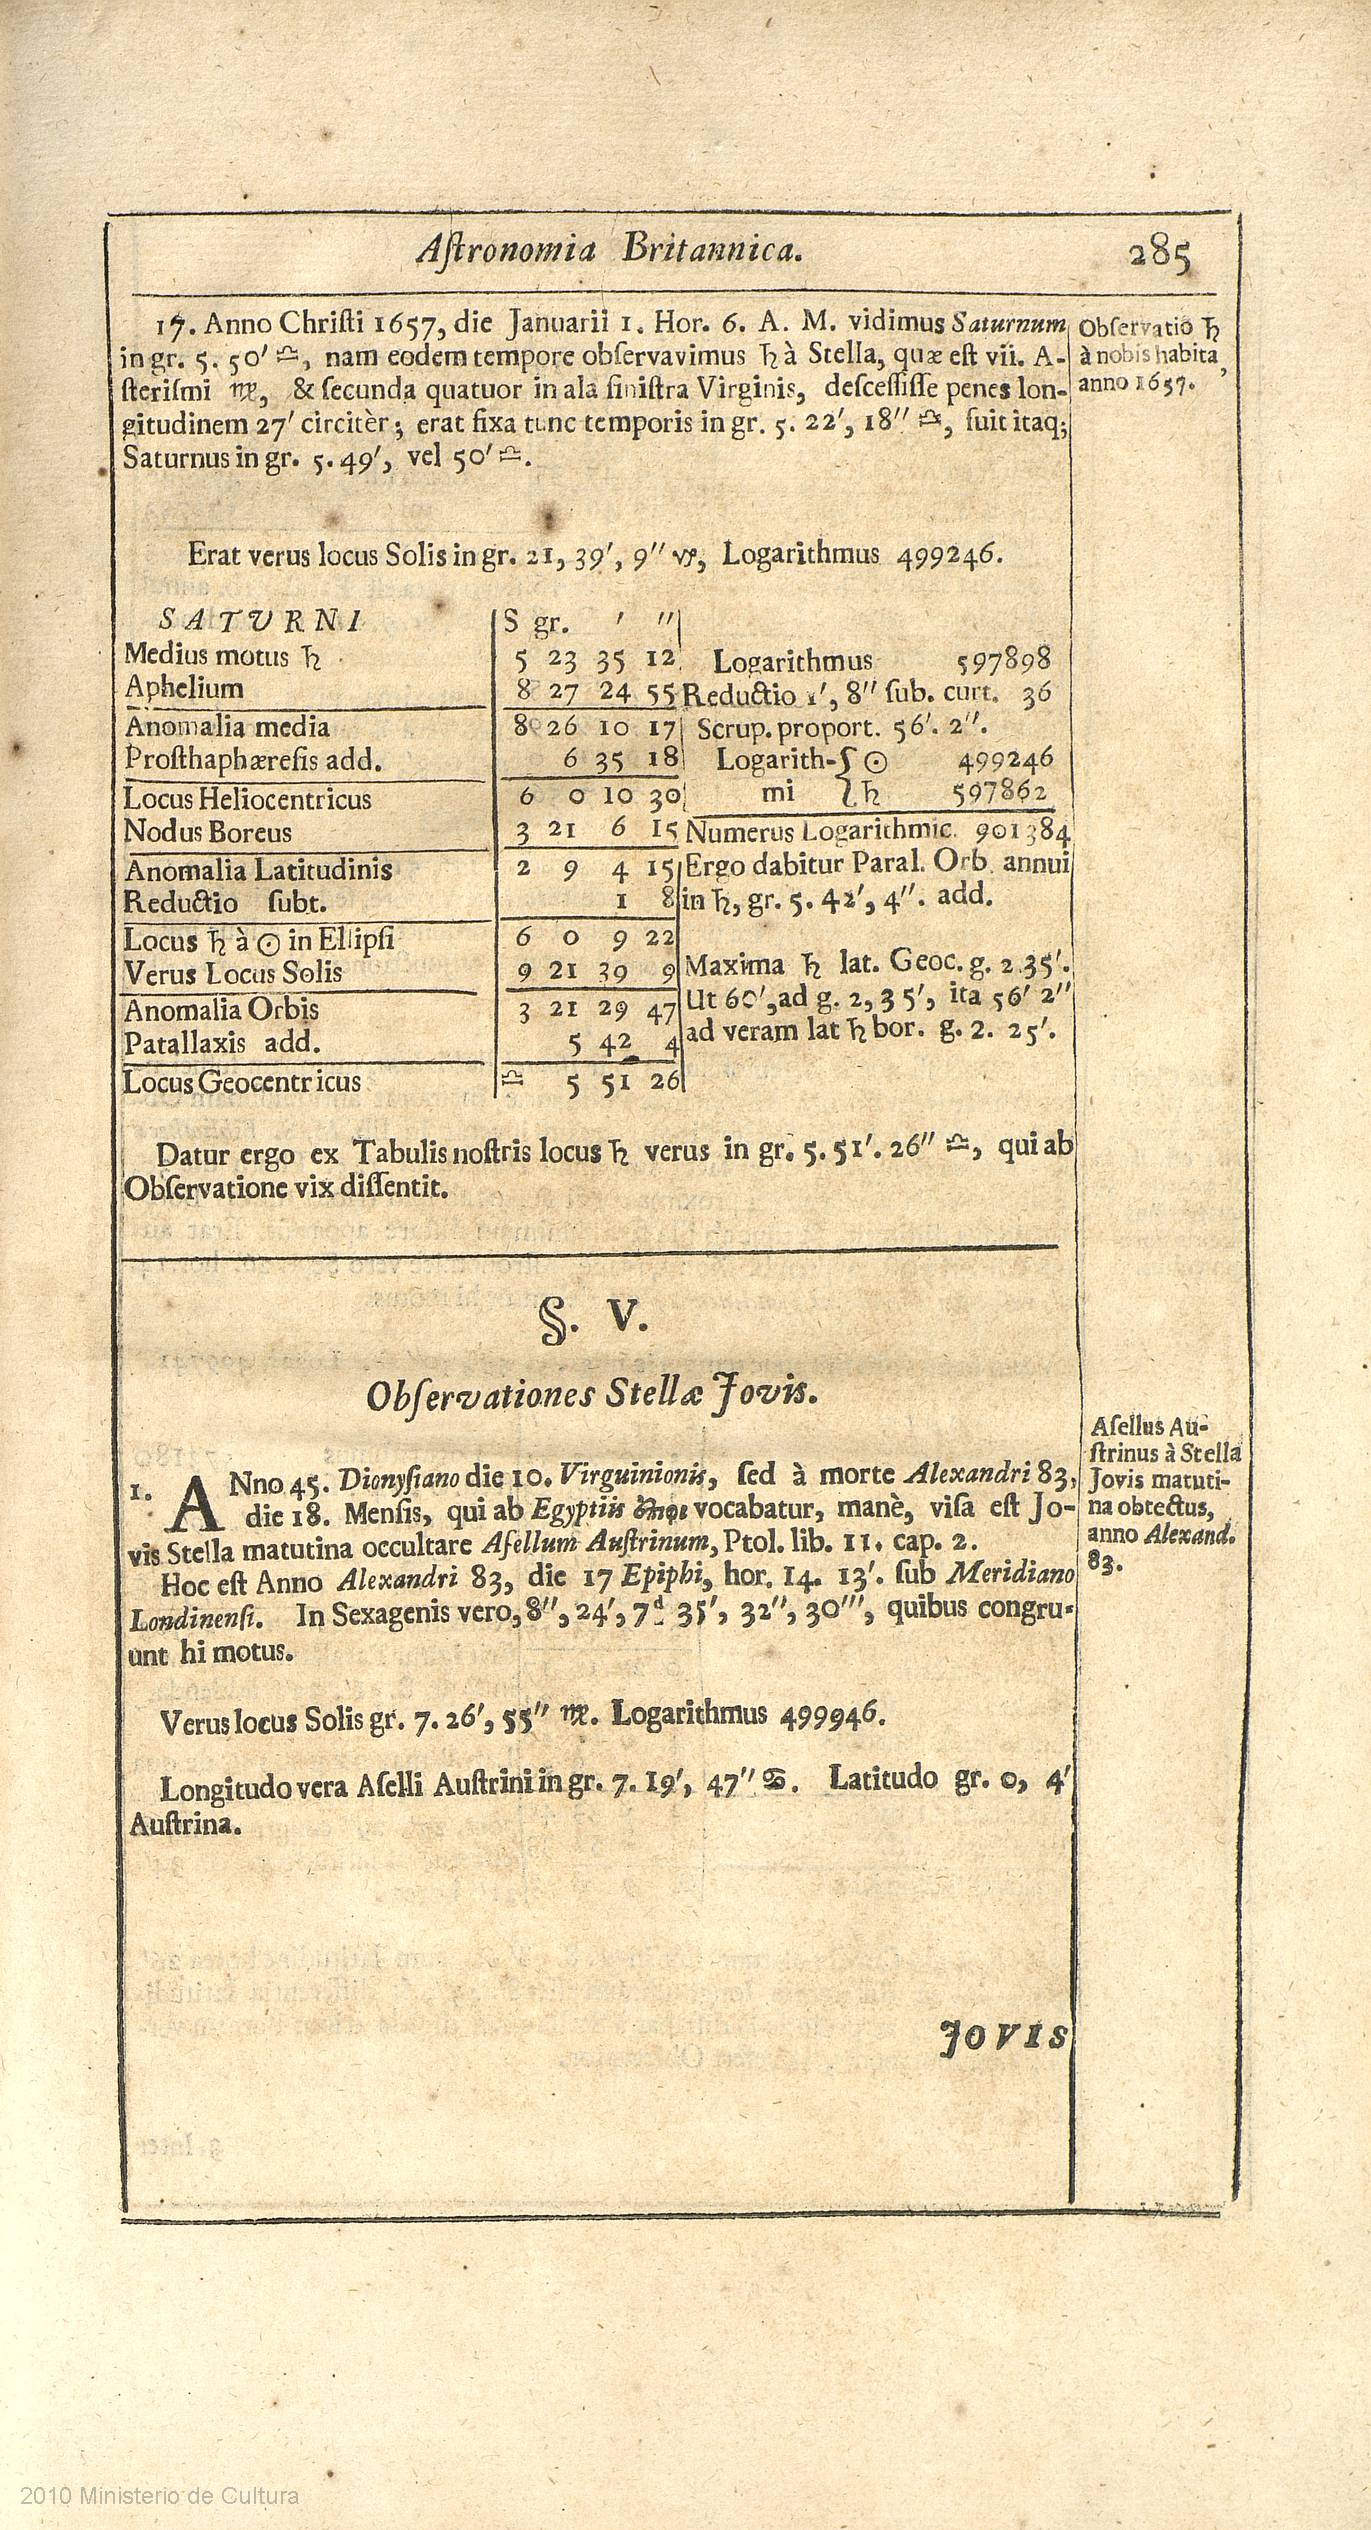 Astronomia Britannica. 285
17. Anno Christi 1657, die Januarii 1. Hor. 6. A. M. vidimus Saturnum
in gr. 5. 50′ ♎, nam eodem tempore observavimus ♄ à Stella, quæ est vii. A-
sterismi ♍, & secunda quatuor in ala sinistra Virginis, descessisse penes lon-
gitudinem 27′ circitèr; erat fixa tunc temporis in gr. 5. 22′, 18″ ♎, fuit itaq;
Saturnus in gr. 5. 49′, vel 50′ ♎.
Observatio ♄
à nobis habita,
anno 1657.
Erat verus locus Solis in gr. 21, 39′, 9″ ♑, Logarithmus 499246.
SATVRNI S gr. ′ ″
Medius motus ♄ 5 23 35 12 Logarithmus 597898
Aphelium 8 27 24 55 Reductio 1′, 8″ sub. curt. 36
Anomalia media 8 26 10 17 Scrup. proport. 56′. 2″.
Prosthaphæresis add. 6 35 18 Logarith- { ☉ 499246
Locus Heliocentricus 6 0 10 30 mi { ♄ 597862
Nodus Boreus 3 21 6 15 Numerus Logarithmic. 901384
Anomalia Latitudinis 2 9 4 15 Ergo dabitur Paral. Orb. annui
Reductio subt. 1 8 in ♄, gr. 5. 42′, 4″. add.
Locus ♄ à ☉ in Ellipsi 6 0 9 22
Verus Locus Solis 9 21 39 9 Maxima ♄ lat. Geoc. g. 2. 35′.
Anomalia Orbis 3 21 29 47 Ut 60′, ad g. 2, 35′, ita 56′ 2″
Patallaxis add. 5 42 4 ad veram lat ♄ bor. g. 2. 25′.
Locus Geocentricus ♎ 5 51 26
Datur ergo ex Tabulis nostris locus ♄ verus in gr. 5. 51′. 26″ ♎, qui ab
Observatione vix dissentit.
§. V.
Observationes Stellæ Jovis.
1. ANno 45. Dionysiano die 10. Virguinionis, sed à morte Alexandri 83,
die 18. Mensis, qui ab Egyptiis vocabatur, manè, visa est Jo-
vis Stella matutina occultare Asellum Austrinum, Ptol. lib. 11. cap. 2.
Hoc est Anno Alexandri 83, die 17 Epiphi, hor. 14. 13′. sub Meridiano
Londinensi. In Sexagenis vero, 8″, 24′, 7d 35′, 32″, 30‴, quibus congru-
unt hi motus.
Asellus Au-
strinus à Stella
Jovis matuti-
na obtectus,
anno Alexand.
83.
Verus locus Solis gr. 7. 26′, 55″ ♍. Logarithmus 499946.
Longitudo vera Aselli Austrini in gr. 7. 19′, 47″ ♋. Latitudo gr. 0, 4′
Austrina.
JOVIS
2010 Ministerio de Cultura